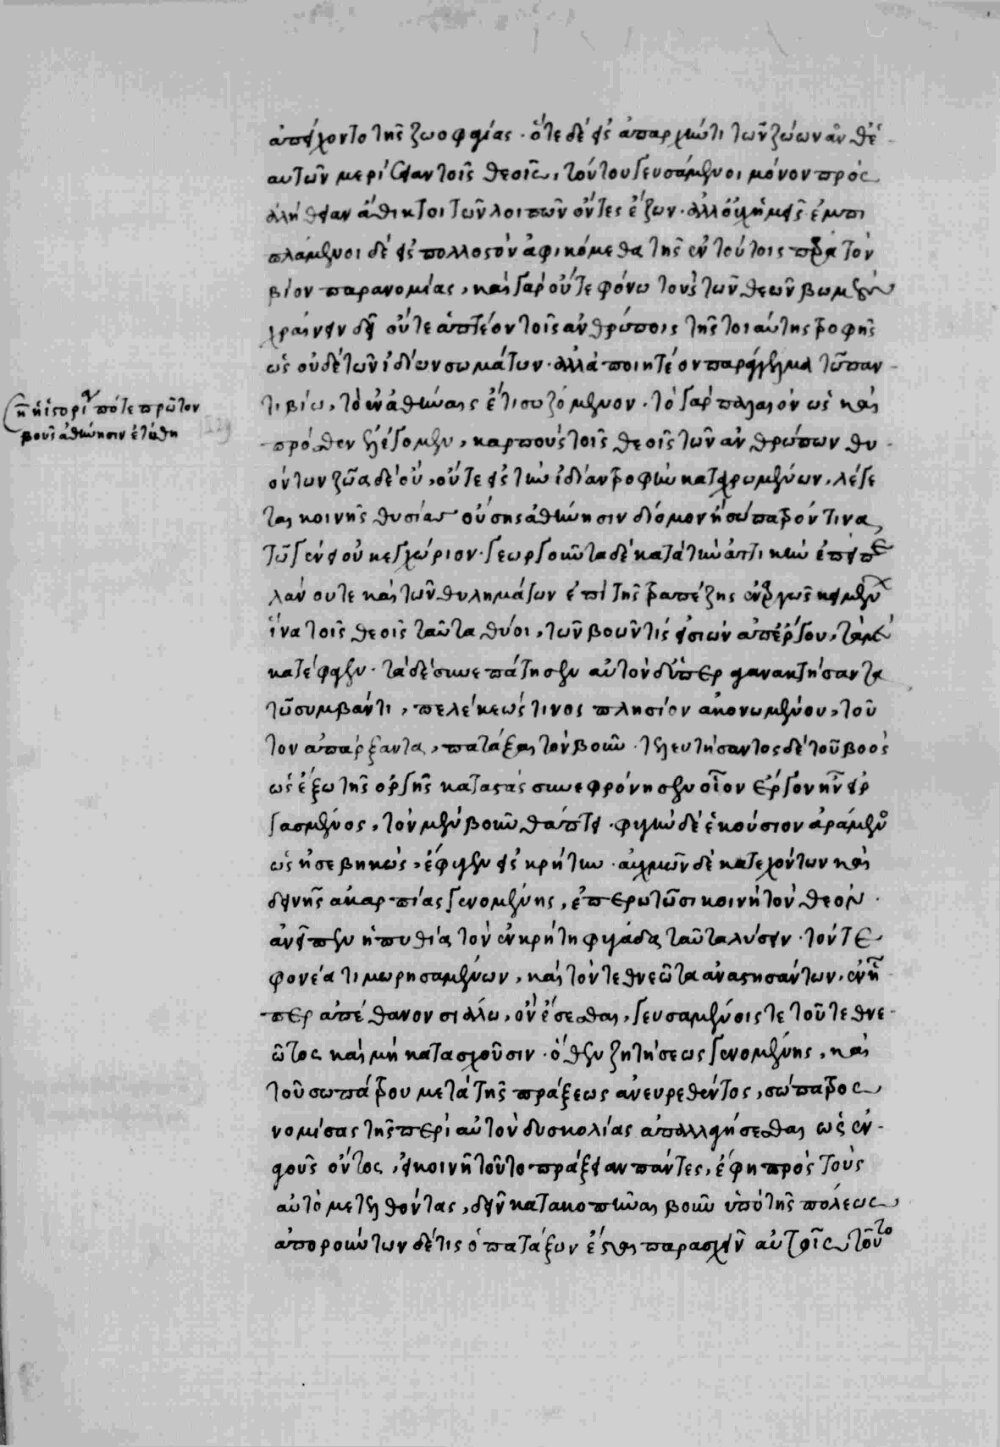 ἀπείχοντο τῆς ζωοφαγίας. ὅτε δὲ εἰς ἀπαρχὴν τι τῶν ζώων ἀνθ'
αὑτῶν μερίσειαν τοῖς θεοῖς, τούτου γευσάμενοι μόνον πρὸς
ἀλήθειαν ἄθικτοι τῶν λοιπῶν ὄντες ἔζων. ἀλλ' οὐχ ἡμεῖς. ἐμπι
πλάμενοι δὲ εἰς πολλοστὸν ἀφικόμεθα τῆς ἐν τούτοις παρὰ τὸν
βίον παρανομίας, καὶ γὰρ οὔτε φόνω τοὺς τῶν θεῶν βωμοὺς
χραίνειν δεῖ οὔτε ἁπτέον τοῖς ἀνθρώποις τῆς τοιαύτης τροφῆς
ὡς οὐδὲ τῶν ἰδίων σωμάτων. ἀλλὰ ποιητέον παράγγελμα τῶ παν
τὶ βίω, τὸ ἐν ἀθήναις ἔτι σωζόμενον. τὸ γὰρ παλαιὸν ὡς καὶ
πρόσθεν ἐλέγομεν, καρποὺς τοῖς θεοῖς τῶν ἀνθρώπων θυ
όντων ζῶα δὲ οὔ, οὔτε εἰς τὴν ἰδίαν τροφὴν καταχρωμένων, λέγε
ται κοινῆς θυσίας οὔσης ἀθήνησιν δίομον ἢ σώπατρόν τινα
τῶ γένει οὐκ ἐγχώριον. γεωργοῦντα δὲ κατὰ τὴν ἀττικὴν ἐπεὶ πε
λάνου τε καὶ τῶν θυλημάτων ἐπὶ τῆς τραπέζης ἐναργῶς κειμένων
ἵνα τοῖς θεοῖς ταῦτα θύοι, τῶν βοῶν τις εἰσιὼν ἀπ' ἔργου, τὰ μὲν
κατέφαγεν. τὰ δὲ συνεπάτησεν αὐτὸν δ' ὑπεραγανακτήσαντα
τῶ συμβάντι, πελέκεώς τινος πλησίον ἀκονωμένου, τοῦ
τον ἀπαρξαντα, πατάξαι τὸν βοῦν. τελευτήσαντος δὲ τοῦ βοὸς
ὡς ἔξω τῆς ὀργῆς καταστὰς συνεφρόνησεν οἷον ἔργον ἦν εἰρ
γασμένος, τὸν μὲν βοῦν θάπτει. φυγὴν δὲ ἑκούσιον ἀράμενος
ὡς ἠσεβηκώς, ἔφυγεν εἰς κρήτην. αὐχμῶν δὲ κατεχόντων καὶ
δεινῆς ἀκαρπίας γενομένης, ἐπερωτῶσι κοινῆ τὸν θεὸν.
ἀνεῖπεν ἡ πυθία τὸν ἐν κρήτη φυγάδα ταῦτα λύσειν. τόν τε
φονέα τιμωρησαμένων, καὶ τὸν τεθνεῶτα ἀναστησάντων, ἐν ἧ
περ ἀπέθανον σιάλω, ὂν ἔσεσθαι, γευσαμένοις τε τοῦ τεθνε
ῶτος καὶ μὴ κατασχοῦσιν. ὅθεν ζητήσεως γενομένης, καὶ
τοῦ σωπάτρου μετὰ τῆς πράξεως ἀνευρεθέντος, σώπατρος
νομίσας τῆς περὶ αὐτὸν δυσκολίας ἀπαλλαγήσεσθαι ὡς ἐν
αγοῦς ὄντος, εἰ κοινῆ τοῦτο πράξειαν πάντες, ἔφη πρὸς τοὺς
αὐτὸ μετελθόντας, δεῖν κατακοπῆναι βοῦν ὑπὸ τῆς πόλεως
ἀπορούντων δὲ τίς ὁ πατάξων ἔσται παρασχεῖν αὐτοῖς τοῦτο
ἡ ἱστορία πότε πρῶτον
βοῦς ἀθήνησιν ἐτύθη